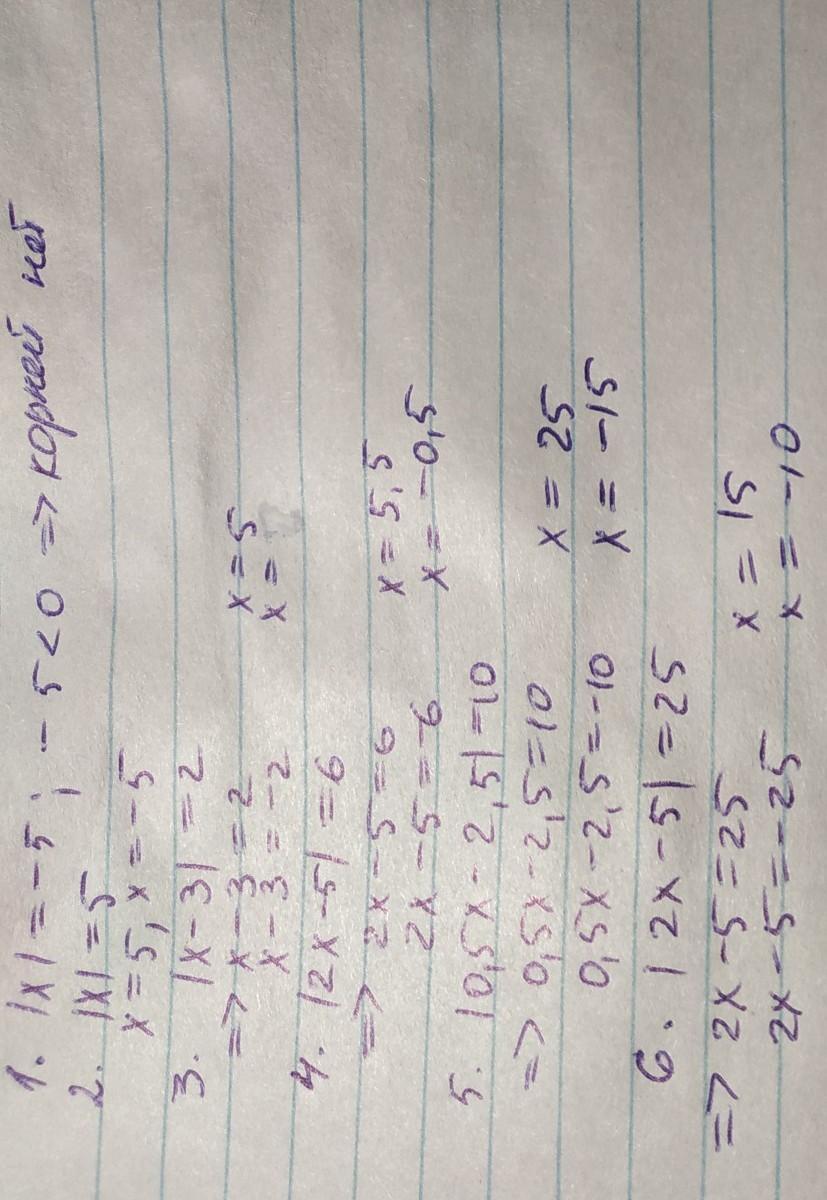 1. |x| = -5 ; -5 < 0 => корней нет
2. |x| = 5
x = 5, x = -5
3. |x - 3| = 2
=> x - 3 = 2 x = 5
x - 3 = -2 x =
4. |2x - 5| = 6
=> 2x - 5 = 6 x = 5,5
2x - 5 = -6 x = -0,5
5. |0,5x - 2,5| = 10
=> 0,5x - 2,5 = 10 x = 25
0,5x - 2,5 = -10 x = -15
6. |2x - 5| = 25
=> 2x - 5 = 25 x = 15
2x - 5 = -25 x = -10